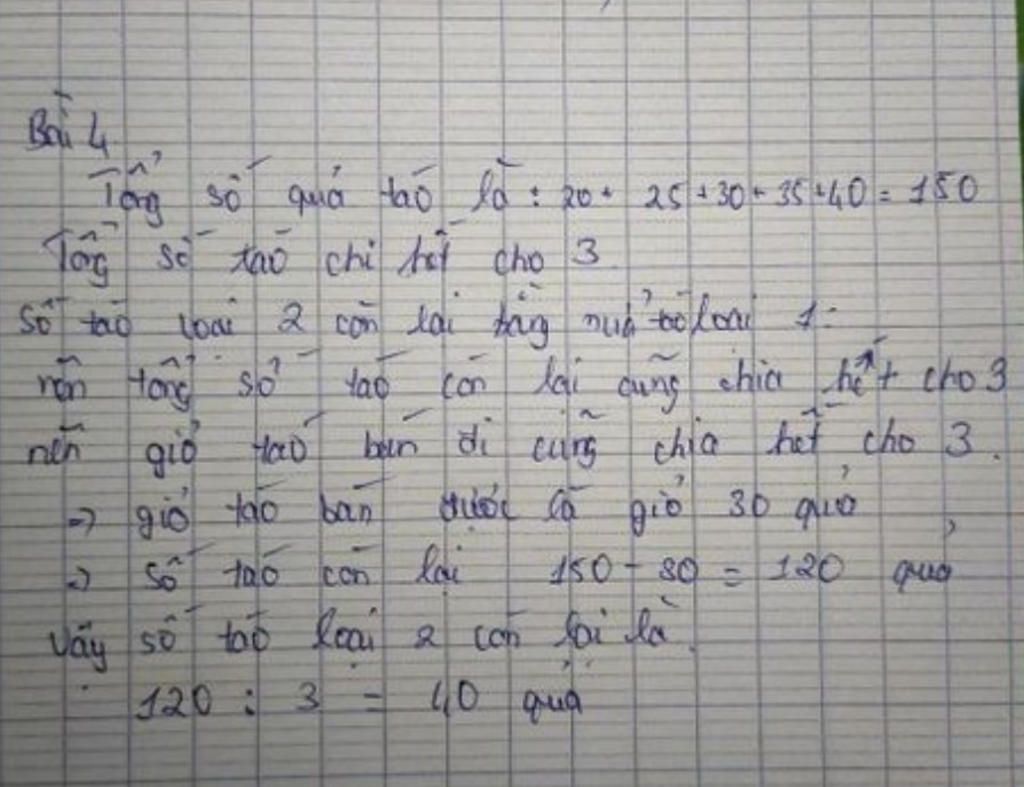 Bài 4
Tổng số quả táo là : 20 + 25 + 30 + 35 + 40 = 150
Tổng số táo chi hết cho 3
Số táo loại 2 còn lại bằng nửa táo loại 1.
nên tổng số táo còn lại cũng chia hết cho 3
nên giỏ táo bán đi cũng chia hết cho 3.
=> giỏ táo bán được là giỏ 30 quả
=> số táo còn lại 150 - 30 = 120 quả
Vậy số táo loại 2 còn lại là
120 : 3 = 40 quả